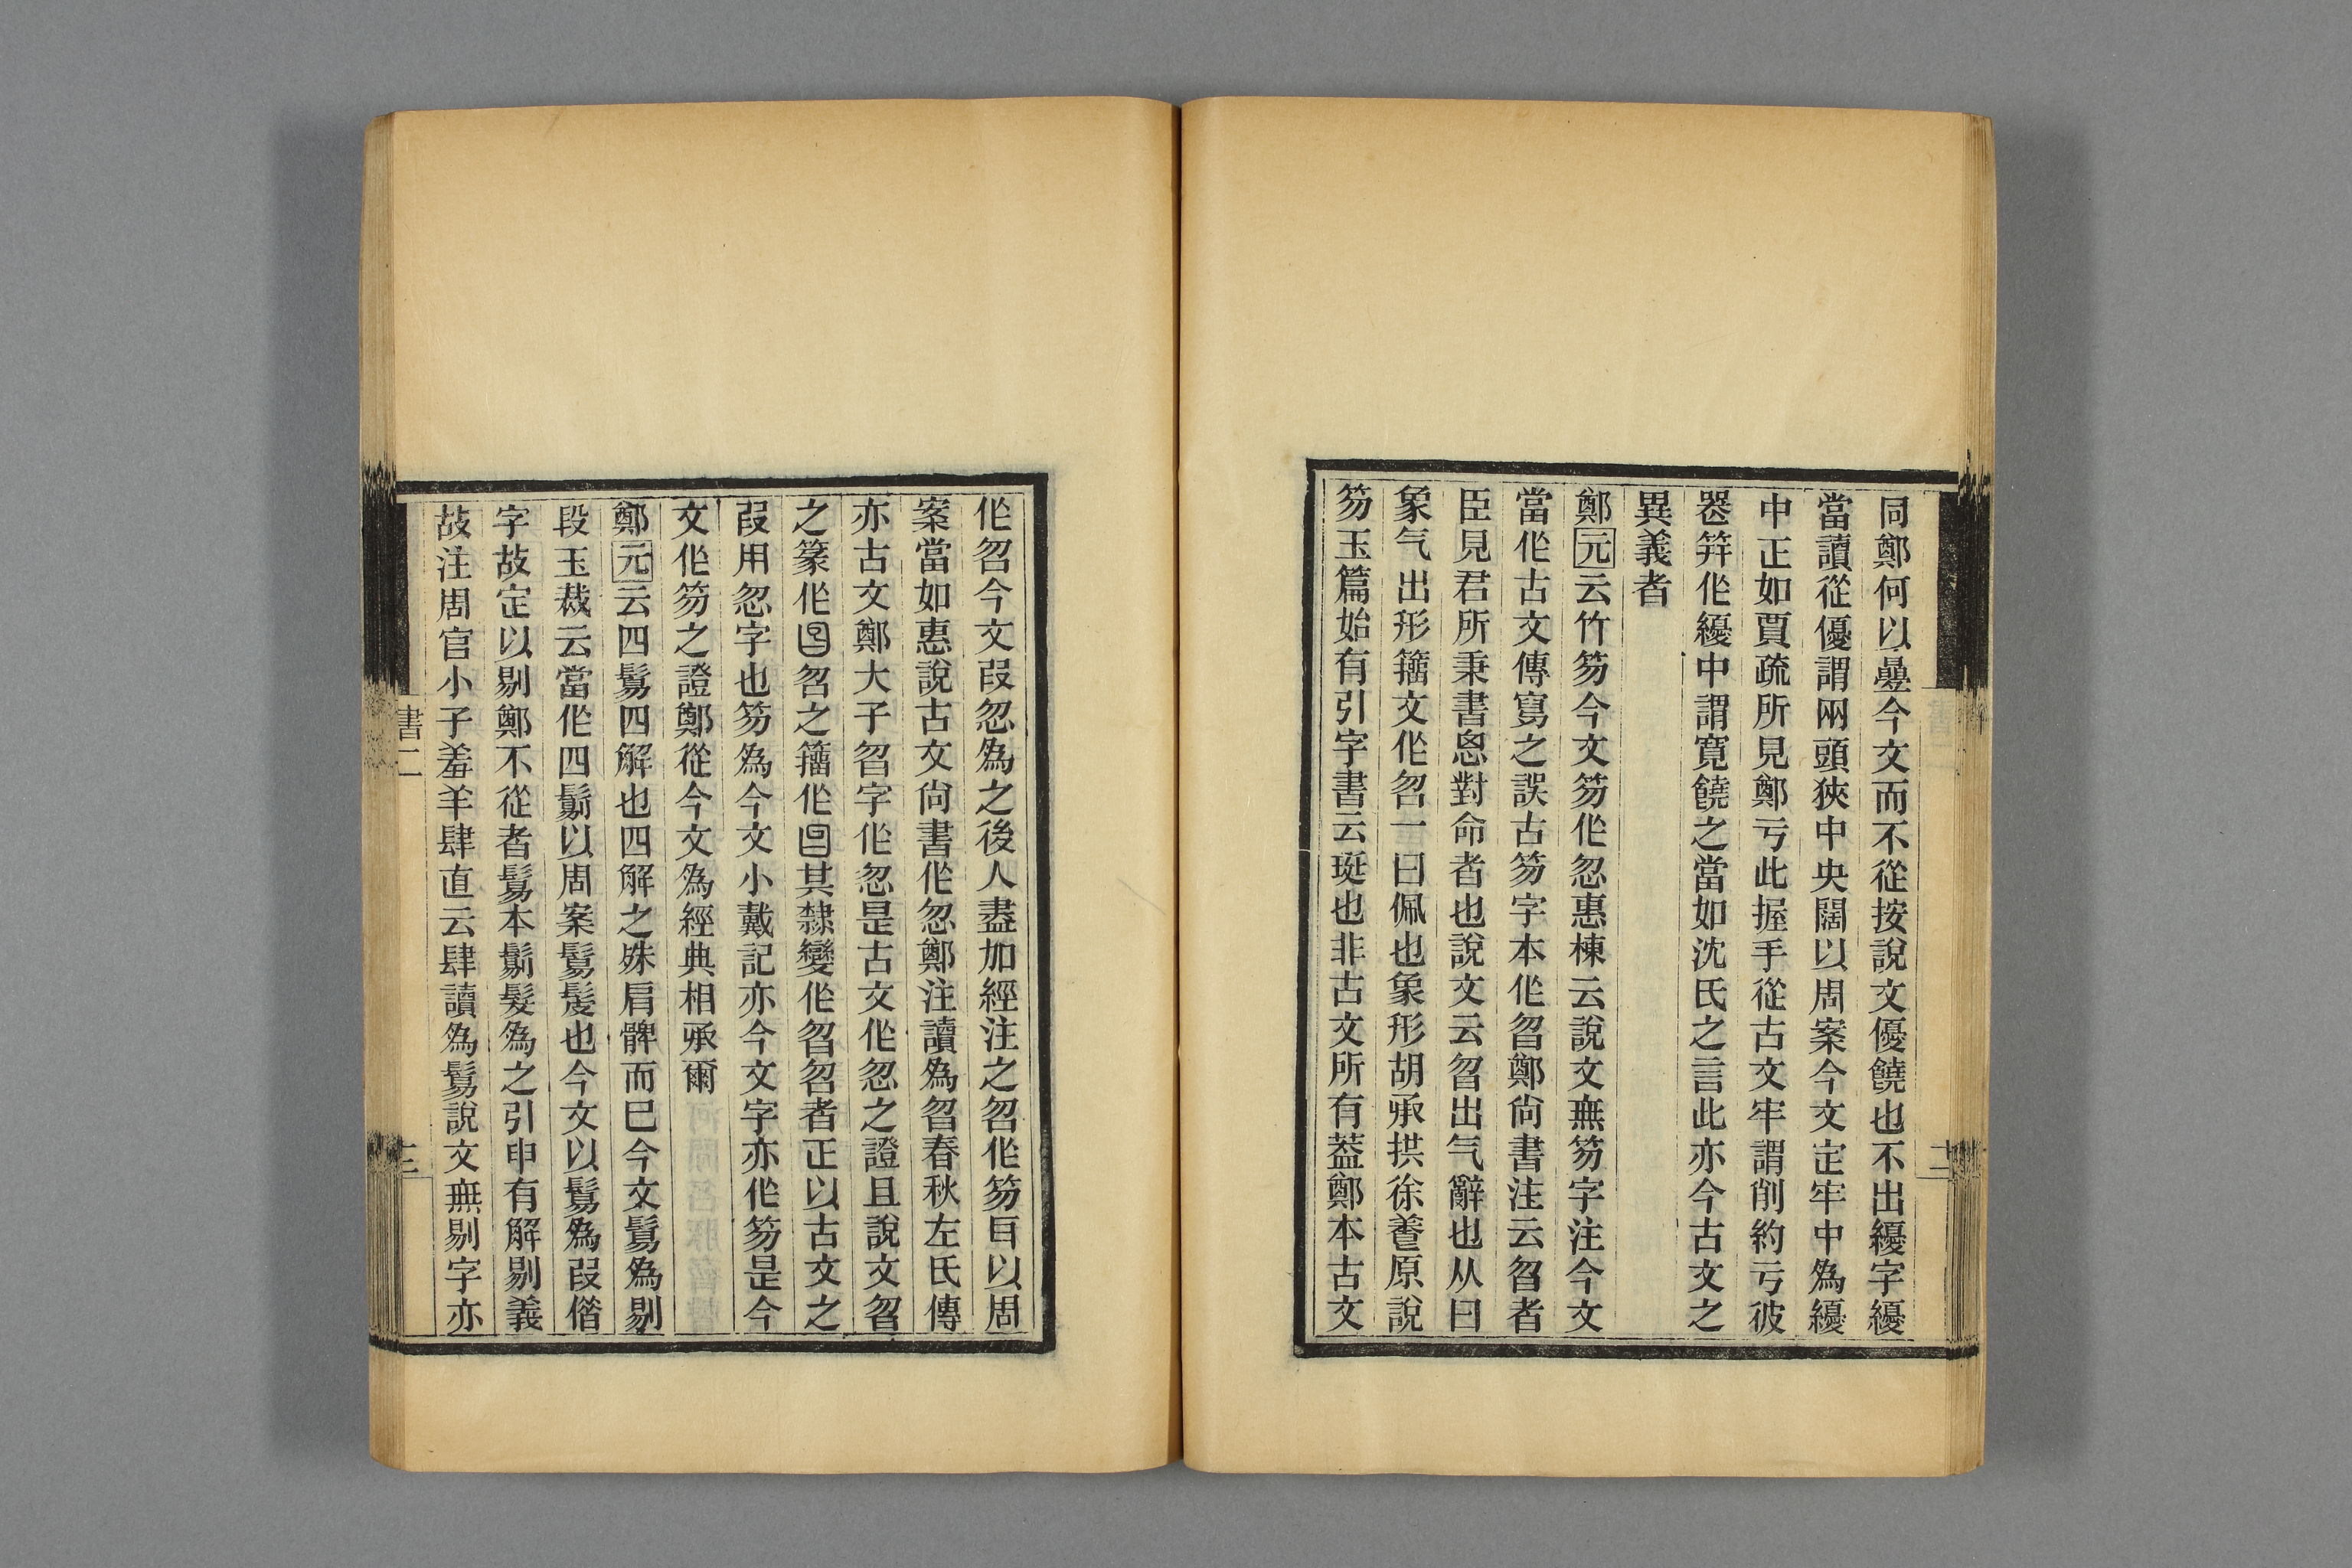 同鄭何以疊今文而不從按說文優饒也不出纋字纋
當讀從優謂兩頭狹中央闊以周案今文定牢中為纋
中正如賈疏所見鄭亏此握手從古文牢謂削約亏彼
器笄作纋中謂寬饒之當如沈氏之言此亦今古文之
異義者
鄭元云竹笏今文笏作忽惠棟云說文無笏字注今文
當作古文傳寫之誤古笏字本作曶鄭尙書注云曶者
臣見君所秉書思對命者也說文云曶出气辭也从曰
象气出形籀文作曶一曰佩也象形胡承珙徐養原說
笏玉篇始有引字書云珽也非古文所有葢鄭本古文
作曶今文叚忽為之後人盡加經注之曶作笏㠯以周
案當如惠說古文尙書作忽鄭注讀為曶春秋左氏傳
亦古文鄭大子曶字作忽是古文作忽之證且說文曶
之篆作曶之籀作其隸變作曶曶者正以古文之
叚用忽字也笏為今文小戴記亦今文字亦作笏是今
文作笏之證鄭從今文為經典相承爾
鄭元云四鬄四解也四解之殊肩髀而已今文鬄為剔
段玉裁云當作四鬄以周案鬄髲也今文以鬄為叚借
字故定以剔鄭不從者鬄本鬄髮為之引申有解剔義
故注周官小子羞羊肆直云肆讀為鬄說文無剔字亦
書二
十三
十二